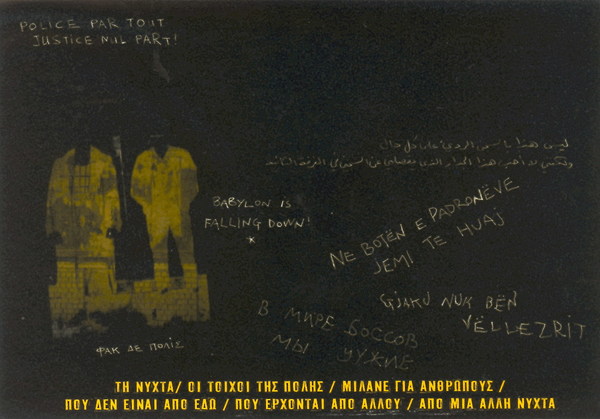 POLICE PAR TOUT
JUSTICE NUL PART!
ليس هذا على كل حال
هذا الجدار الذي يفصلني عن في الغرفة
BABYLON IS
FALLING DOWN!
*
NE BOTËN E PADRONËVE
JEMI TE HUAJ
GJAKU NUK BËN
VËLLEZRIT
В МИРЕ БОССОВ
МЫ ЧУЖИЕ
ΦΑΚ ΔΕ ΠΟΛΙΣ
ΤΗ ΝΥΧΤΑ/ ΟΙ ΤΟΙΧΟΙ ΤΗΣ ΠΟΛΗΣ / ΜΙΛΑΝΕ ΓΙΑ ΑΝΘΡΩΠΟΥΣ /
ΠΟΥ ΔΕΝ ΕΙΝΑΙ ΑΠΟ ΕΔΩ / ΠΟΥ ΕΡΧΟΝΤΑΙ ΑΠΟ ΑΛΛΟΥ / ΑΠΟ ΜΙΑ ΑΛΛΗ ΝΥΧΤΑ